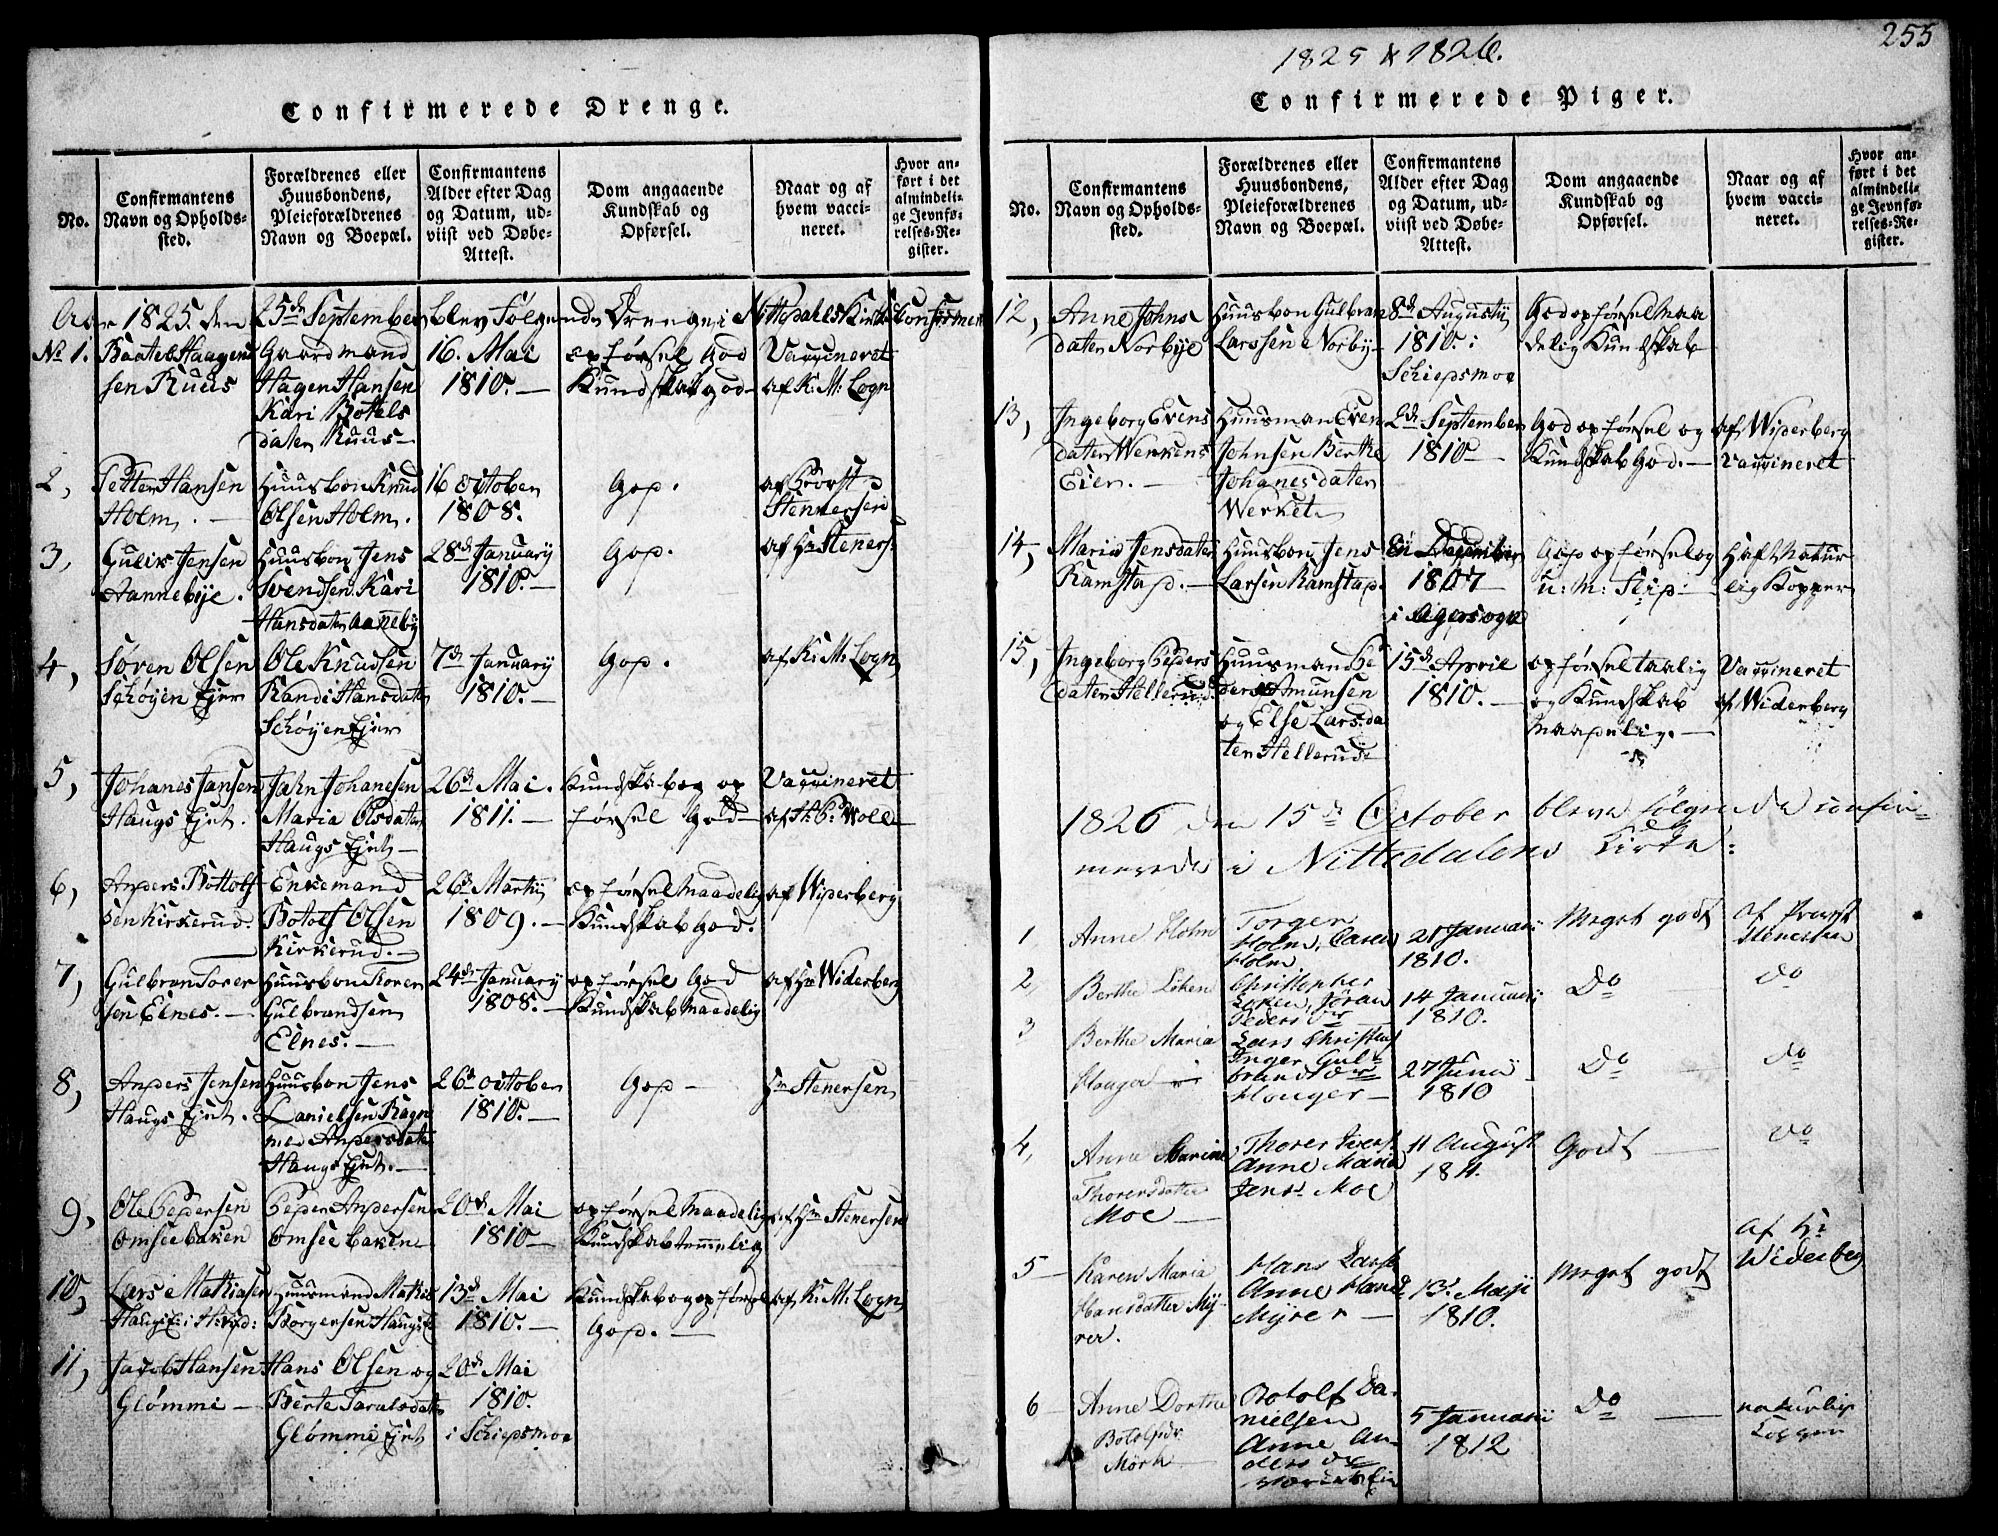 255
1825 & 1826.
Confirmerede Drenge.
No.
Confirmantens
Navn og Opholds-
sted.
Forældrenes eller
Huusbondens,
Pleieforældrenes
Navn og Boepæl.
Confirmantens
Alder efter Dag
og Datum, ud-
viist ved Døbe-
Attest.
Dom angaaende
Kundskab og
Opførsel.
Naar og af
hvem vacci-
neret.
Hvor an-
ført i det
almindeli-
ge Jevnfø-
relses-Re-
gister.
Aar 1825. den 25de September blev følgende Drenge i Nittedahls Kirke
No 1.
Haagen
sen Ruus
Gaardmand
Hagen Hansen
Kari Bottels
daten Ruus
16. Mai
1810.
opførsel God
Kundskab god
Vaccineret
af K: M: Logn
2,
Petter Hansen
Holm.
Huusbon Knud
Olsen Holm.
16 october
1808.
God.
af Provst
Stennersen
3,
Gulik Jensen
Aannebye.
Huusbon Jens
Svendsen Kari
Hansdaten Aaneby
28de January
1810.
God.
af Hr Steners:
4,
Søren Olsen
Schøyen Ejer
Ole Knudsen
Randi Hansdaten
Schøyen Ejer
7de January
1810.
God.
af K: M: Logn
5,
Johanes Jansen
Haugs Ejet.
Jahn Johanesen
Maria Olsdaten
Haugs Ejet
26de Mai
1811.
Kundskab og op
førsel God
Vaccineret
6,
Anders Bottolf
sen Kirkerud.
Enkemand
Botolf Olsen
Kirkerud.
26de Martij
1809.
opførsel Maadelig
Kundskab God.
af Widerberg
7,
Gulbran Torer
sen Elnes.
Huusbon Torer
Gulbrandsen
Elnes.
24de January
1808.
opførsel God
Kundskab Maadelig
af Hr Widerberg
8,
Anders Jensen
Haugs Ejet.
Huusbon Jens
Danielsen Ragn
Andersdate
Haugs Ejet.
26de october
1810.
God
Hr Stenersen
9,
Ole Pedersen
Omsee bakken
Peder Andersen
Omsee bakene
20de Mai
1810
opførsel Maadelig
Kundskab temmelig
af Hr Stenersen
10,
Lars Mathiasen
Huusmand Mathis
Borgersen Haugs
13de Mai
1810.
Kundskab og opførsel
God.
af K: M: Logn
11,
Jacob Hansen
Glømmi
Hans Olsen og
Berte Taralsdate
Glømmi Ejet
20de Mai
1810.
i Schiepsmoe
Confirmerede Piger.
No.
Confirmantens
Navn og Opholds-
sted.
Forældrenes eller
Huusbondens,
Pleieforældrenes
Navn og Boepæl.
Confirmantens
Alder efter Dag
og Datum, ud-
viist ved Døbe-
Attest.
Dom angaaende
Kundskab og
Opførsel.
Naar og af
hvem vacci-
neret.
Hvor an-
ført i det
almindeli-
ge Jevnfø-
relses-Re-
gister.
12,
Anne Johns
daten Norbye
Huusbon Gulbran
Larssen Norby
8de Augustij
1810.
Schiepsmoe
God opførsel Maa
delig Kundskab
13,
Ingeborg Evens
daten Werkens
Eier.
Huusman Even
Johnsen Berthe
Johanesdaten
Werket
2de September
1810
God opførsel og
Kundskab God.
af Widerberg
Vaccineret
14,
Maria Jensdaten
Ramstad.
Huusbon Jens
Larsen Ramstad.
December
1807
i Agersogn
God opførsel og
u: m: Flid:
Haft Natur
lig Kopper
15,
Ingeborg Peders
daten Hellerud.
Huusman Pe
der Amunsen
og Else Larsda
ten Hellerud
15de April
1810.
opførsel taalig
og Kundskab
Maadelig.
Vaccineret
af Widerberg
1826 den 15de October bleve følgende confir-
merede i Nittedalens Kirke:
1,
Anne Holm
Torger
Holm, Caren
Holm
21 Januari
1810.
Meget godt
af Provst
Stenersen
2,
Berthe Løken
Christopher
Løken, Jøran
Peders Dr
14 Januarii
1810.
Do
Do
3
Berthe Maria
Houger
Lars Christ
Inger Gul-
brands Dr
Houger
27 Juni
1810
Do
Do
4,
Anne Marine
Thorersdatter
Moe
Thorer Ivers.
Anne Maria
Jens. Moe
11 August
1811.
Godt
Do
5
Karen Maria
Hansdatter My-
rer.
Hans Lars.
Anne Hans
Myrer
13. Maji
1810.
Meget godt
af Hr
Wederberg
6
Anne Dorthe
Botolfsdr
Mørk
Botolf Da-
nielsen
Anne An-
ders Dr
5 Januarii
1812
Do
naturlig
Kopper